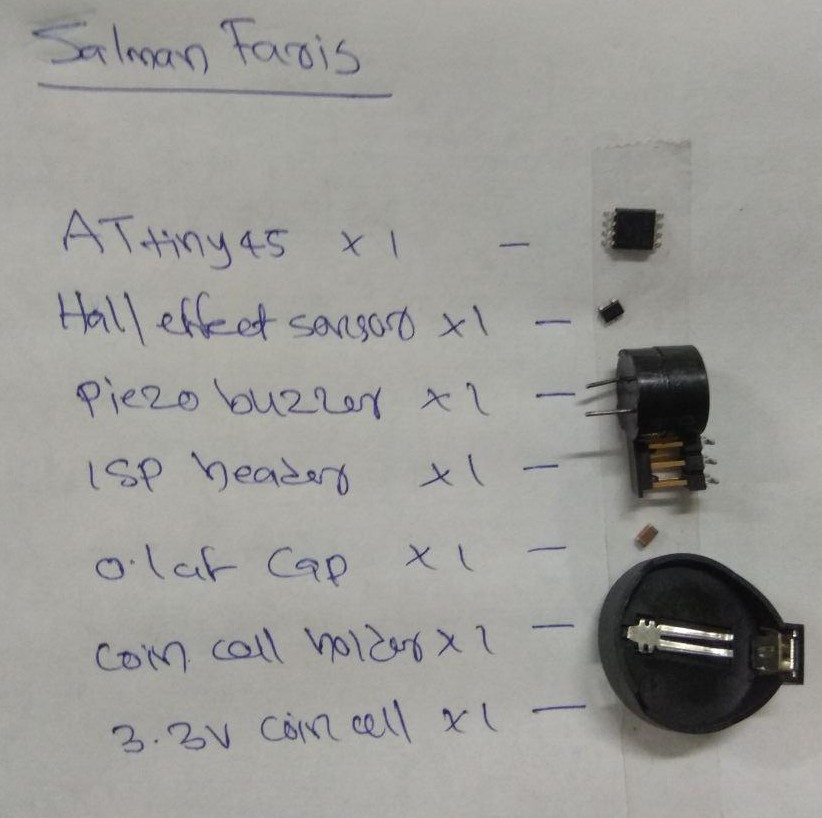 Salman Faris
ATtiny45 x 1 -
Hall effect sensor x 1 -
Piezo buzzer x 1 -
ISP header x 1 -
0.1uF Cap x 1 -
Coin cell holder x 1 -
3.3V Coin cell x 1 -